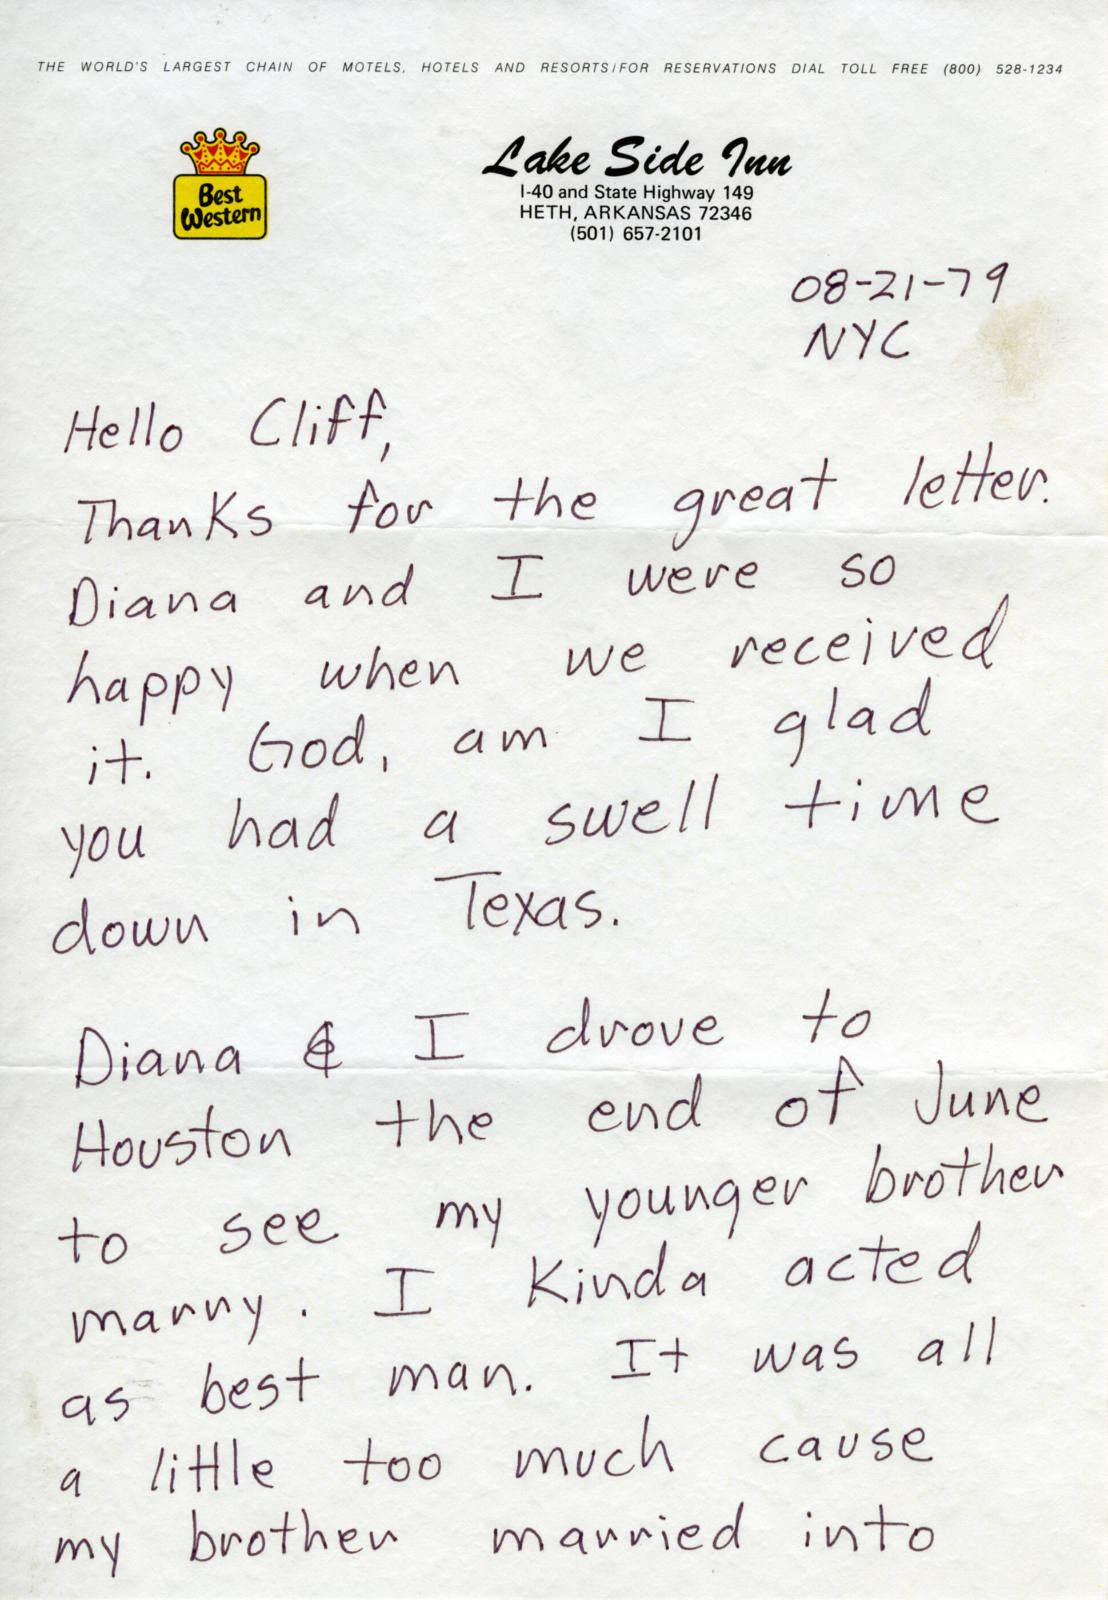 THE WORLD'S LARGEST CHAIN OF MOTELS, HOTELS AND RESORTS/FOR RESERVATIONS DIAL TOLL FREE (800) 528-1234
Best
Western
Lake Side Inn
I-40 and State Highway 149
HETH, ARKANSAS 72346
(501) 657-2101
08-21-79
NYC
Hello Cliff,
Thanks for the great letter.
Diana and I were so
happy when we received
it. God, am I glad
you had a swell time
down in Texas.
Diana & I drove to
Houston the end of June
to see my younger brother
marry. I kinda acted
as best man. It was all
a little too much cause
my brother married into